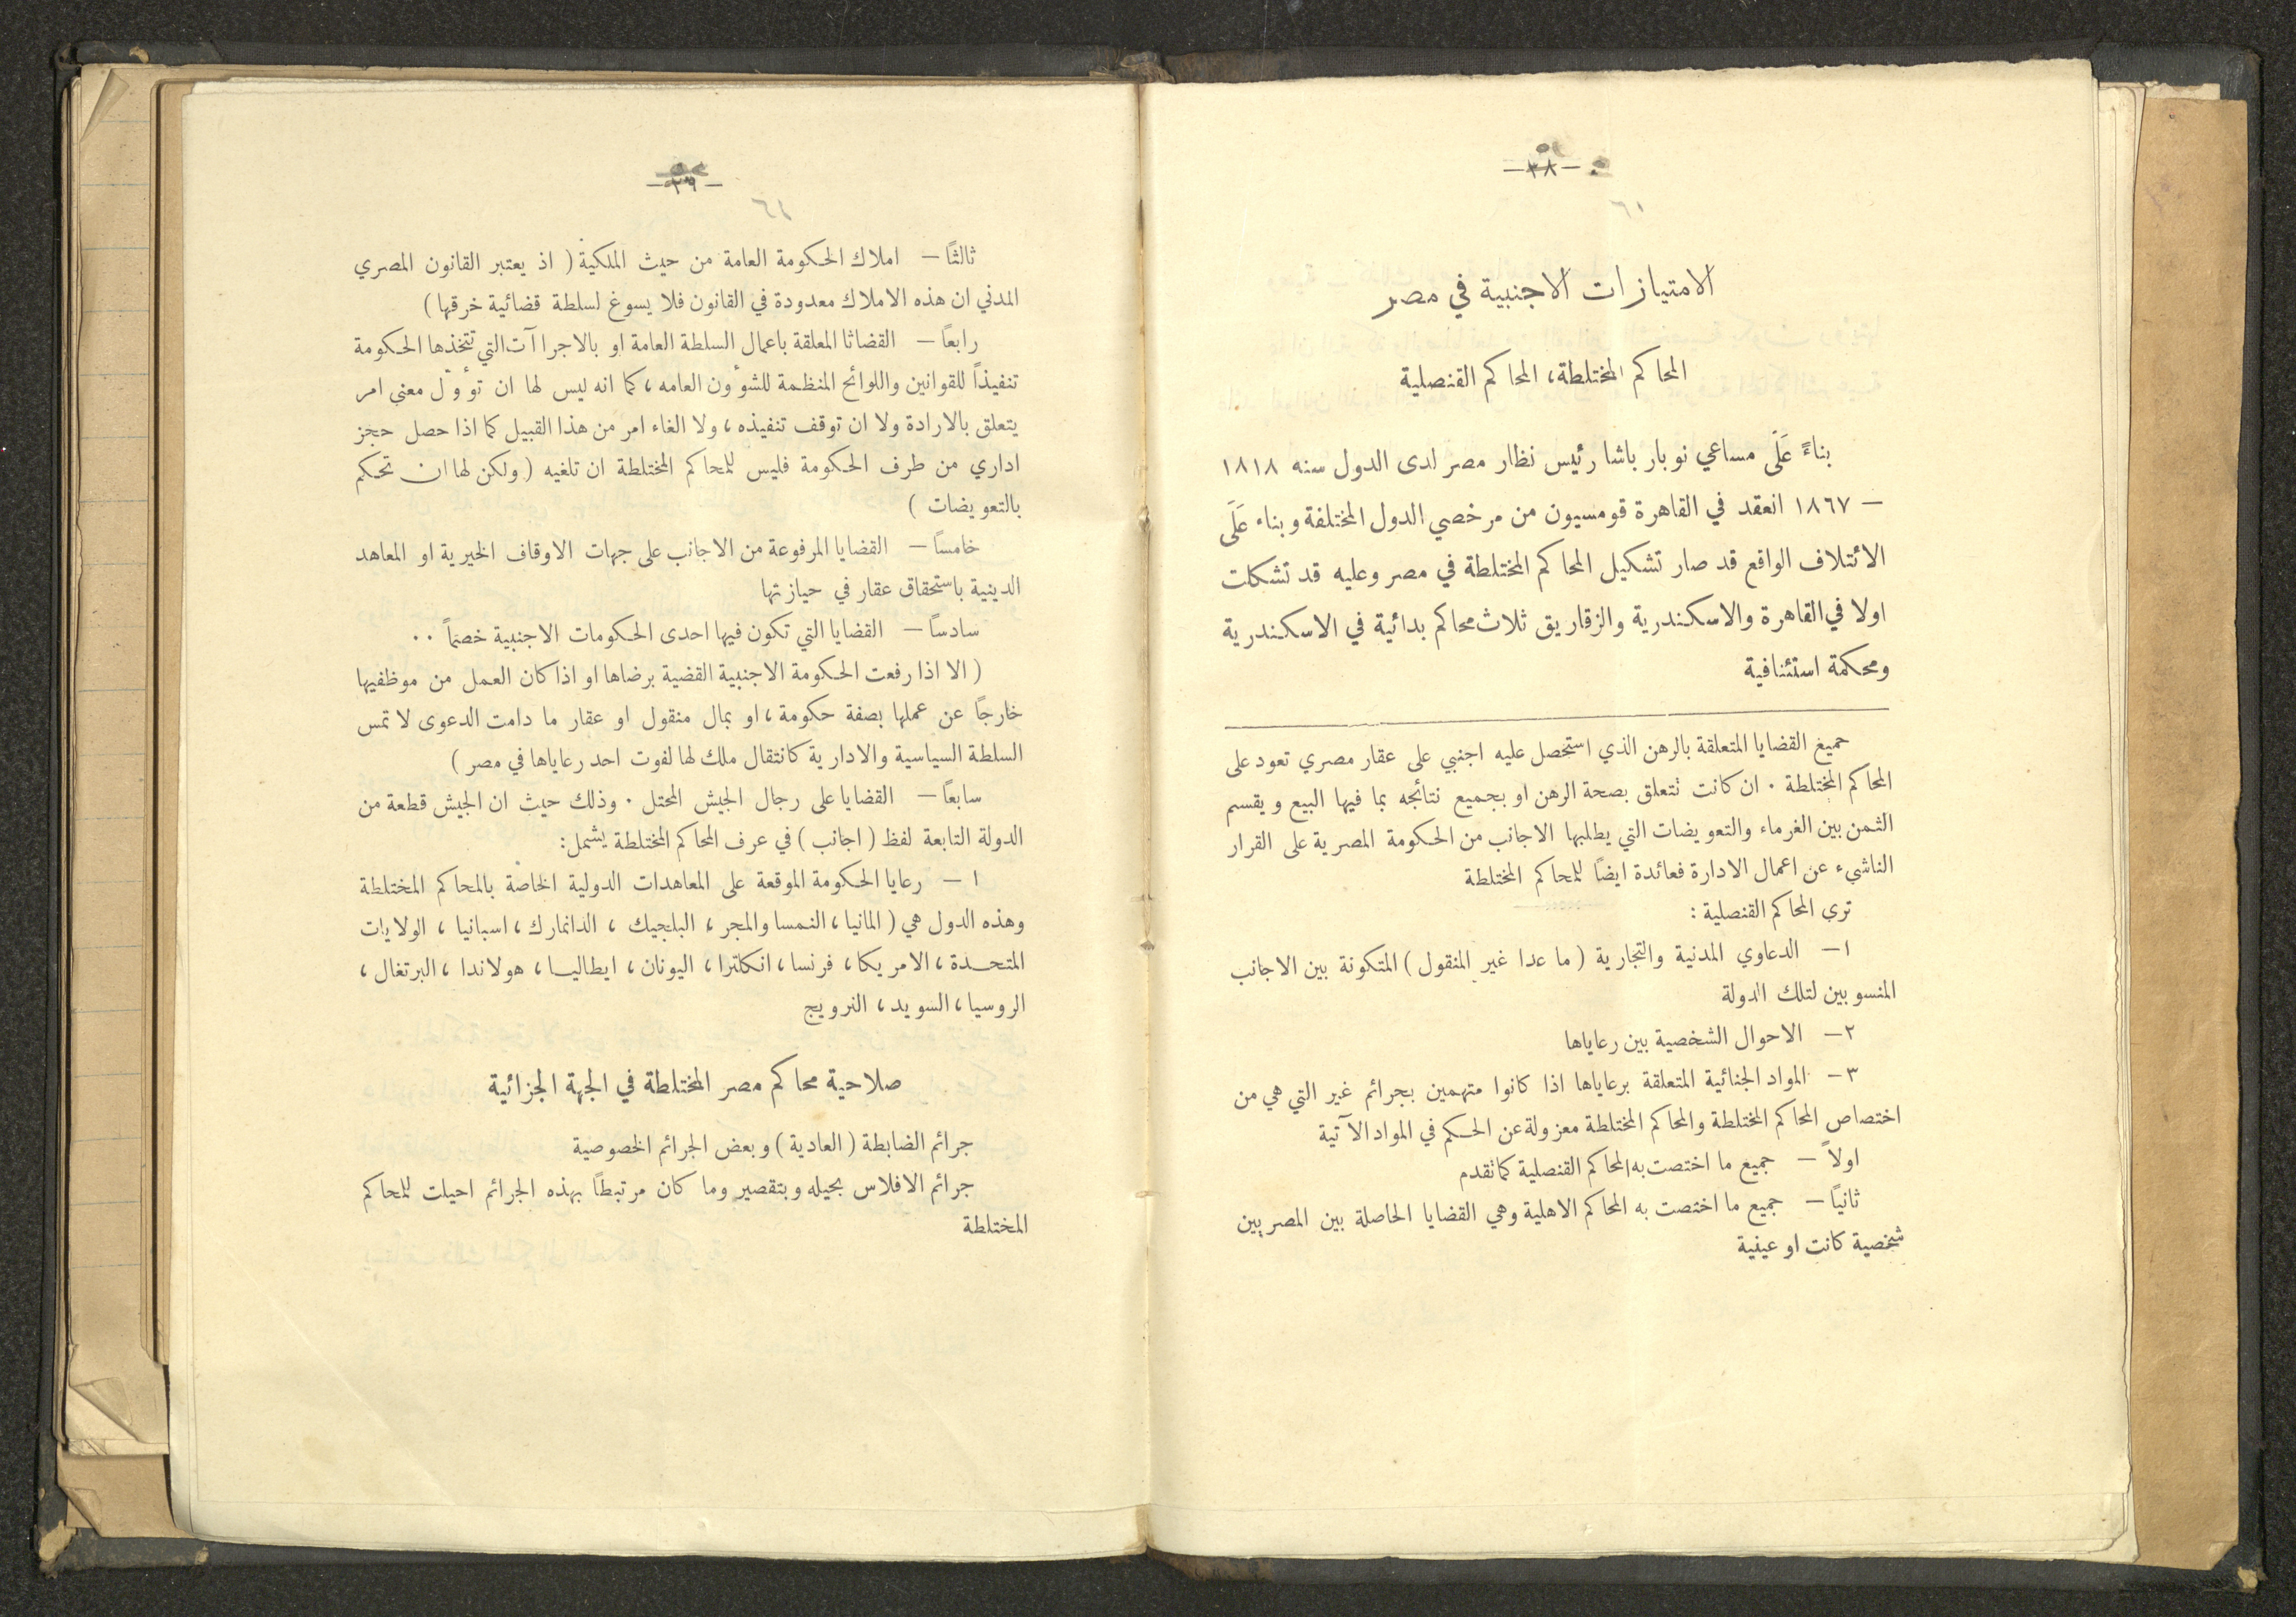 — ٣٨ —
٦١
الامتيازات الاجنبية في مصر
المحاكم المختلطة، المحاكم القنصلية
بناءً عَلَى مساعي نوبار باشا رئيس نظار مصر لدى الدول سنه ١٨١٨
— ١٨٦٧ انعقد في القاهرة قومسيون من مرخصي الدول المختلفة وبناء عَلَى
الائتلاف الواقع قد صار تشكيل المحاكم المختلطة في مصر وعليه قد تشكلت
اولا في القاهرة والاسكندرية والزقازيق ثلاث محاكم بدائية في الاسكندرية
ومحكمة استئنافية
جميع القضايا المتعلقة بالرهن الذي استحصل عليه اجنبي على عقار مصري تعود على
المحاكم المختلطة . ان كانت تتعلق بصحة الرهن او بجميع نتائجه بما فيها البيع ويقسم
الثمن بين الغرماء والتعويضات التي يطلبها الاجانب من الحكومة المصرية على القرار
الناشيء عن اعمال الادارة فعائدة ايضًا للمحاكم المختلطة
ترى المحاكم القنصلية :
١ — الدعاوي المدنية والتجارية ( ما عدا غير المنقول ) المتكونة بين الاجانب
المنسوبين لتلك الدولة
٢ — الاحوال الشخصية بين رعاياها
٣ — المواد الجنائية المتعلقة برعاياها اذا كانوا متهمين بجرائم غير التي هي من
اختصاص المحاكم المختلطة والمحاكم المختلطة معزولة عن الحكم في المواد الآتية
اولاً — جميع ما اختصت به المحاكم القنصلية كما تقدم
ثانيًا — جميع ما اختصت به المحاكم الاهلية وهي القضايا الحاصلة بين المصريين
شخصية كانت او عينية
— ٣٩ —
ثالثًا — املاك الحكومة العامة من حيث الملكية ( اذ يعتبر القانون المصري
المدني ان هذه الاملاك معدودة في القانون فلا يسوغ لسلطة قضائية خرقها )
رابعًا — القضائا المعلقة باعمال السلطة العامة او بالاجراآت التي تتخذها الحكومة
تنفيذاً للقوانين واللوائح المنظمة للشوؤن العامه، كما انه ليس لها ان توؤل معنى امر
يتعلق بالارادة ولا ان توقف تنفيذه، ولا الغاء امر من هذا القبيل كما اذا حصل حجز
اداري من طرف الحكومة فليس للمحاكم المختلطة ان تلغيه ( ولكن لها ان تحكم
بالتعويضات )
خامساً — القضايا المرفوعة من الاجانب على جهات الاوقاف الخيرية او المعاهد
الدينية باستحقاق عقار في حيازتها
سادساً — القضايا التي تكون فيها احدى الحكومات الاجنبية خصماً ..
( الا اذا رفعت الحكومة الاجنبية القضية برضاها او اذا كان العمل من موظفيها
خارجًا عن عملها بصفة حكومة، او بمال منقول او عقار ما دامت الدعوى لا تمس
السلطة السياسية والادارية كانتقال ملك لها لفوت احد رعاياها في مصر )
سابعًا — القضايا على رجال الجيش المحتل . وذلك حيث ان الجيش قطعة من
الدولة التابعة لفظ ( اجانب ) في عرف المحاكم المختلطة يشمل:
١ — رعايا الحكومة الموقعة على المعاهدات الدولية الخاصة بالمحاكم المختلطة
وهذه الدول هي ( المانيا، النمسا والمجر، البلجيك ، الدانمارك، اسبانيا ، الولايات
المتحدة، الامريكا، فرنسا، انكلترا، اليونان، ايطاليا، هولاندا، البرتغال،
الروسيا، السويد، النرويج
صلاحية محاكم مصر المختلطة في الجهة الجزائية
جرائم الضابطة ( العادية ) وبعض الجرائم الخصوصية
جرائم الافلاس بحيله وبتقصير وما كان مرتبطًا بهذه الجرائم احيلت للمحاكم
المختلطة